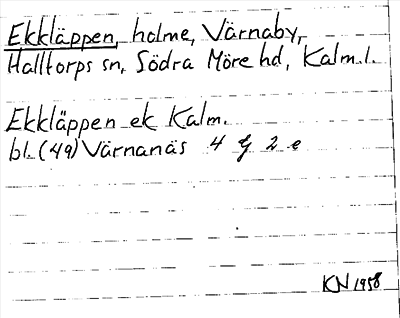 Ekkläppen, holme, Värnaby,
Halltorps sn, Södra Möre hd, Kalm. l.
Ekkläppen ek Kalm.
bl. (49) Värnanäs 4 G 2 e
KN 1958